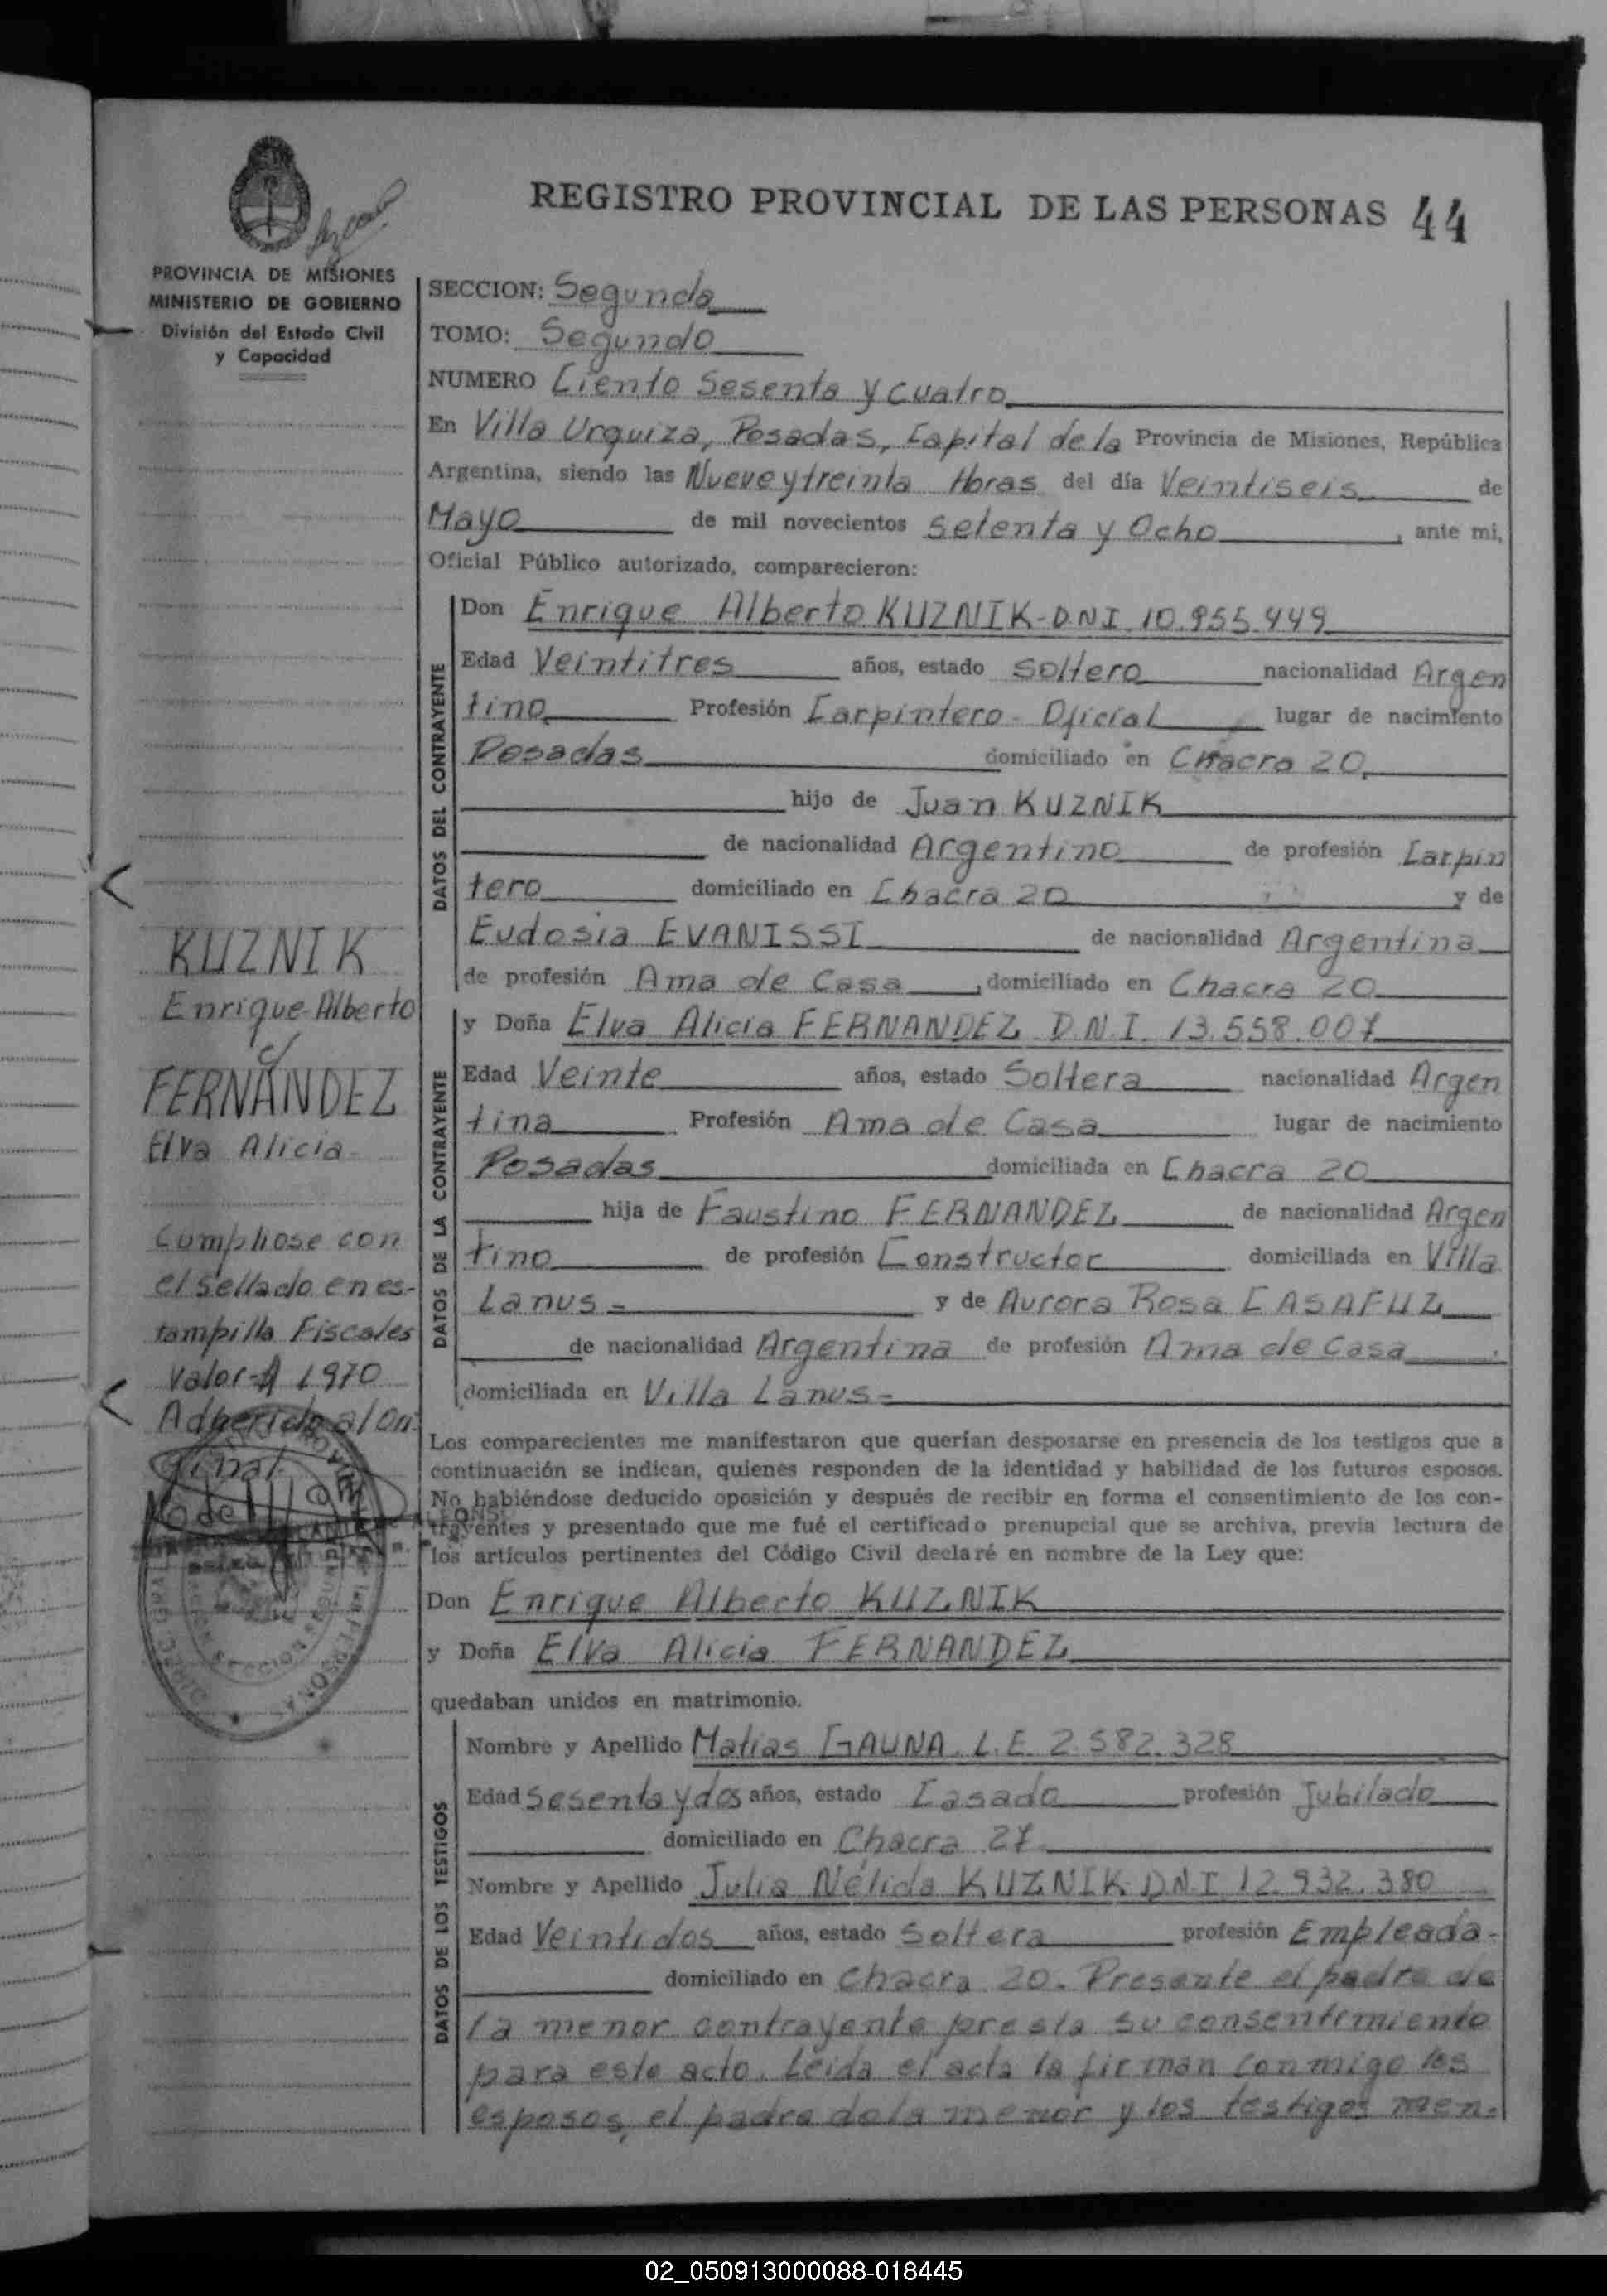 REGISTRO PROVINCIAL DE LAS PERSONAS 44
PROVINCIA DE MISIONES
MINISTERIO DE GOBIERNO
División del Estado Civil
y Capacidad
SECCION: Segunda
TOMO: Segundo
NUMERO Ciento Sesenta y cuatro
En Villa Urquiza, Posadas, Capital de la Provincia de Misiones, República
Argentina, siendo las Nueve y treinta Horas del día Veintiseis de
Mayo de mil novecientos setenta y Ocho, ante mi,
Oficial Público autorizado, comparecieron:
DATOS DEL CONTRAYENTE
Don Enrique Alberto KUZNIK-D.N.I. 10.955.449
Edad Veintitres años, estado soltero nacionalidad Argen
tino Profesión Carpintero-Oficial lugar de nacimiento
Posadas domiciliado en Chacra 20,
hijo de Juan KUZNIK
de nacionalidad Argentino de profesión Carpin
tero domiciliado en Chacra 20 y de
Eudosia EVANISSI de nacionalidad Argentina
de profesión Ama de Casa, domiciliado en Chacra 20
DATOS DE LA CONTRAYENTE
y Doña Elva Alicia FERNANDEZ D.N.I. 13.558.007
Edad Veinte años, estado Soltera nacionalidad Argen
tina Profesión Ama de Casa lugar de nacimiento
Posadas domiciliada en Chacra 20
hija de Faustino FERNANDEZ de nacionalidad Argen
tino de profesión Constructor domiciliada en Villa
Lanus- y de Aurora Rosa CASAFUZ
de nacionalidad Argentina de profesión Ama de Casa
domiciliada en Villa Lanus-
KUZNIK
Enrique-Alberto
c/
FERNÁNDEZ
Elva Alicia-
Cumpliose con
el sellado en es-
tampilla Fiscales
Valor-$ 1970
Adherido al Ori-
ginal
Los comparecientes me manifestaron que querían desposarse en presencia de los testigos que a
continuación se indican, quienes responden de la identidad y habilidad de los futuros esposos.
No habiéndose deducido oposición y después de recibir en forma el consentimiento de los con-
trayentes y presentado que me fué el certificado prenupcial que se archiva, previa lectura de
los artículos pertinentes del Código Civil declaré en nombre de la Ley que:
Don Enrique Alberto KUZNIK
y Doña Elva Alicia FERNANDEZ
quedaban unidos en matrimonio.
DATOS DE LOS TESTIGOS
Nombre y Apellido Matias GAUNA. L.E. 2.582.328
Edad Sesenta y dos años, estado Casado profesión Jubilado
domiciliado en Chacra 27
Nombre y Apellido Julia Nélida KUZNIK DNI 12.932.380
Edad Veintidos años, estado Soltera profesión Empleada-
domiciliado en Chacra 20. Presente el padre de
la menor contrayente presta su consentimiento
para este acto. Leida el acta la firman conmigo los
esposos, el padre de la menor y los testigos men-
02_050913000088-018445